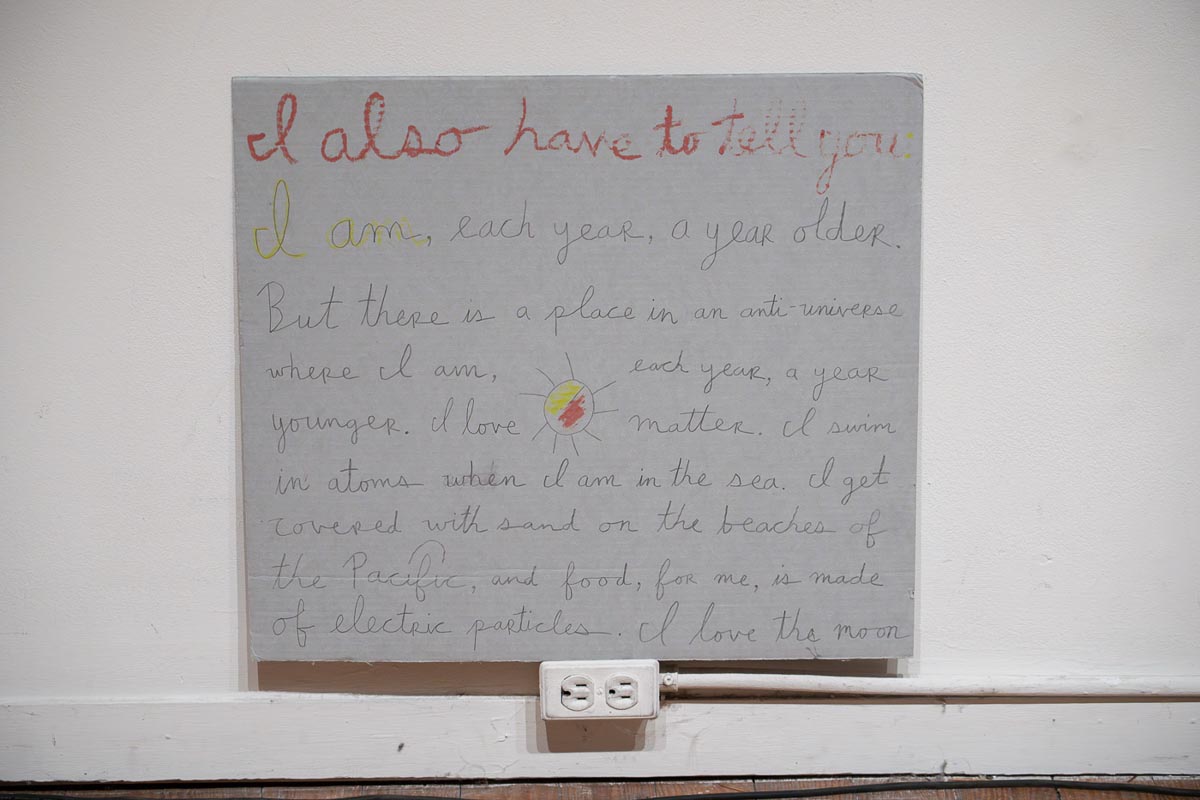 I also have to tell you:
I am, each year, a year older.
But there is a place in an anti-universe
where I am, each year, a year
younger. I love matter. I swim
in atoms when I am in the sea. I get
covered with sand on the beaches of
the Pacific, and food, for me, is made
of electric particles. I love the moon